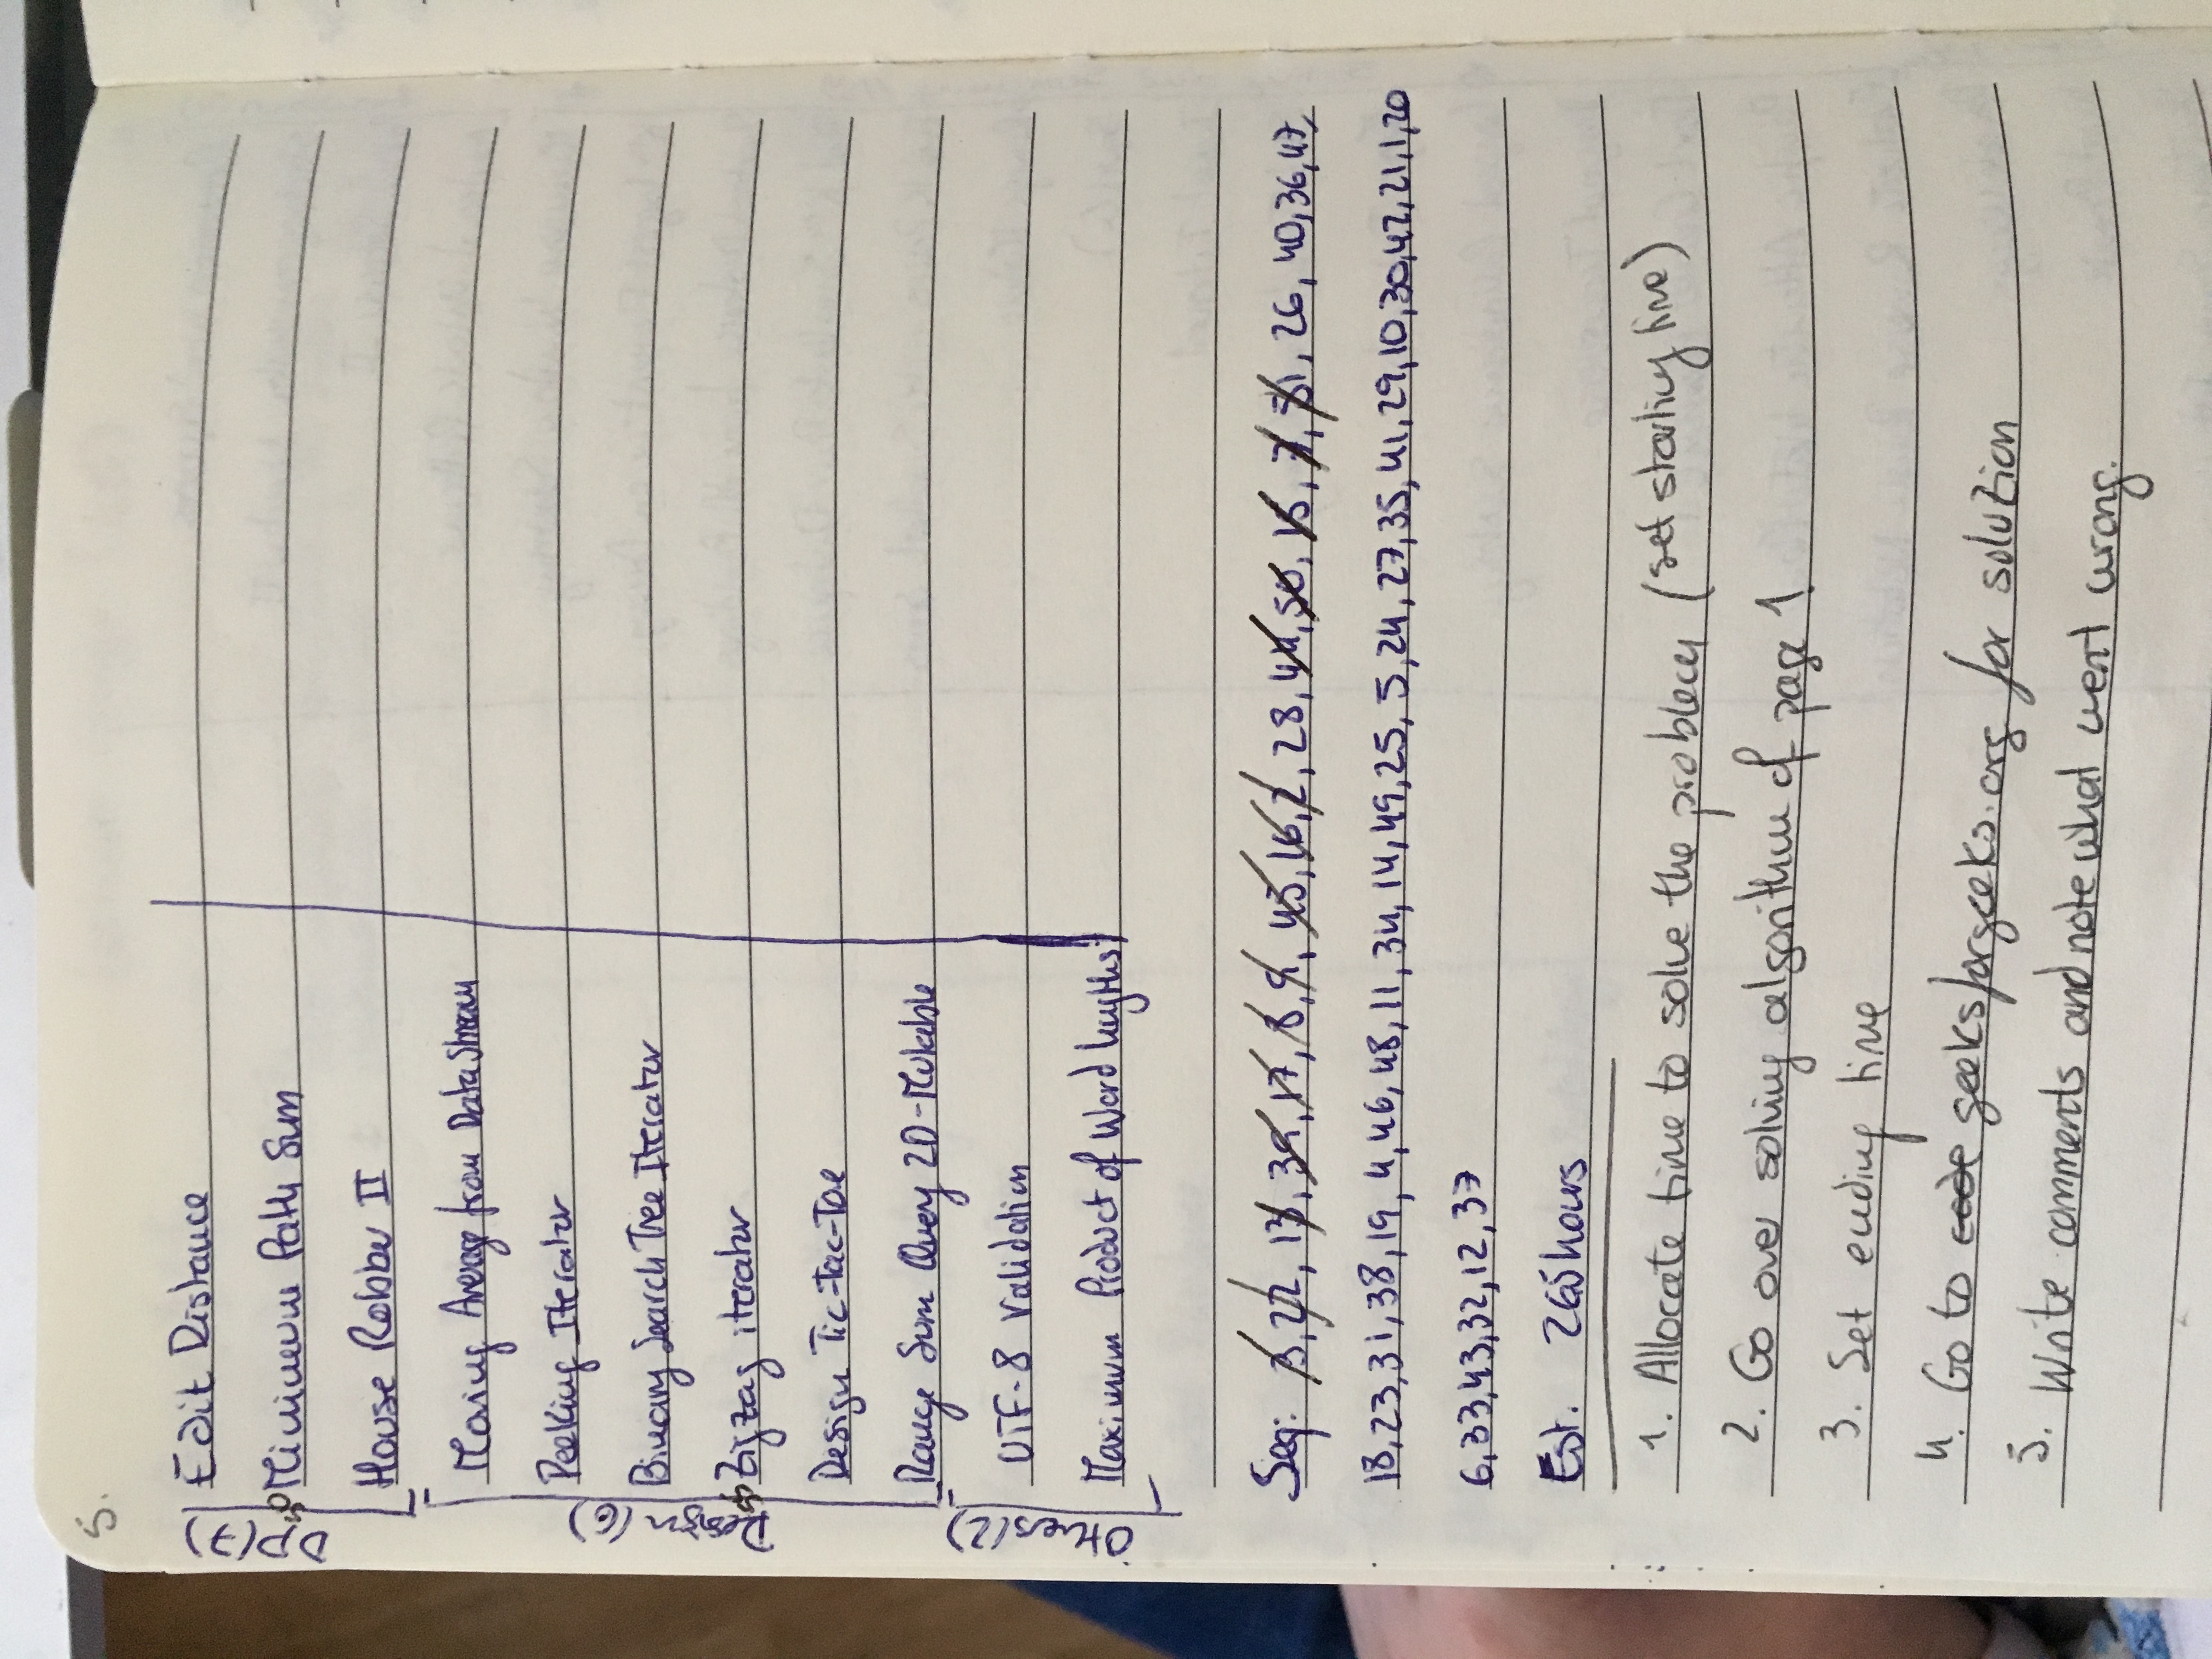 5.
DP(7)
Edit Distance
50 Minimum Path Sum
House Robber II
Design (6)
Moving Average from Data Stream
Peeking Iterator
Binary Search Tree Iterator
Zigzag iterator
Design Tic-Tac-Toe
Range Sum Query 2D-Mutable
Others(2)
UTF-8 Validation
Maximum Product of Word lengths
Seq: 3, 22, 13, 39, 17, 8, 9, 45, 16, 2, 28, 44, 50, 15, 7, 51, 26, 40, 36, 47,
18, 23, 31, 38, 19, 4, 46, 48, 11, 34, 14, 49, 25, 5, 24, 27, 35, 41, 29, 10, 30, 42, 21, 1, 20
6, 33, 43, 32, 12, 37
Est. 265 hours
1. Allocate time to solve the problem (set starting time)
2. Go over solving algorithm of page 1
3. Set ending time
4. Go to code geeksforgeeks.org for soluzion
5. Write comments and note what went wrong.